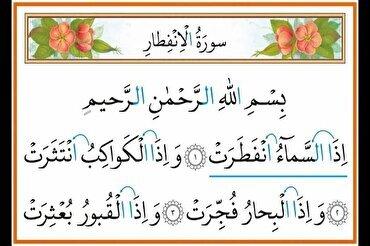 سورَةُ الْاِنْفِطار
بِسْمِ اللهِ الرَّحْمٰنِ الرَّحيمِ
اِذَا السَّماءُ انْفَطَرَتْ ﴿١﴾ وَ اِذَا الْكَواكِبُ انْتَثَرَتْ
﴿٢﴾ وَ اِذَا الْبِحارُ فُجِّرَتْ ﴿٣﴾ وَ اِذَا الْقُبورُ بُعْثِرَتْ